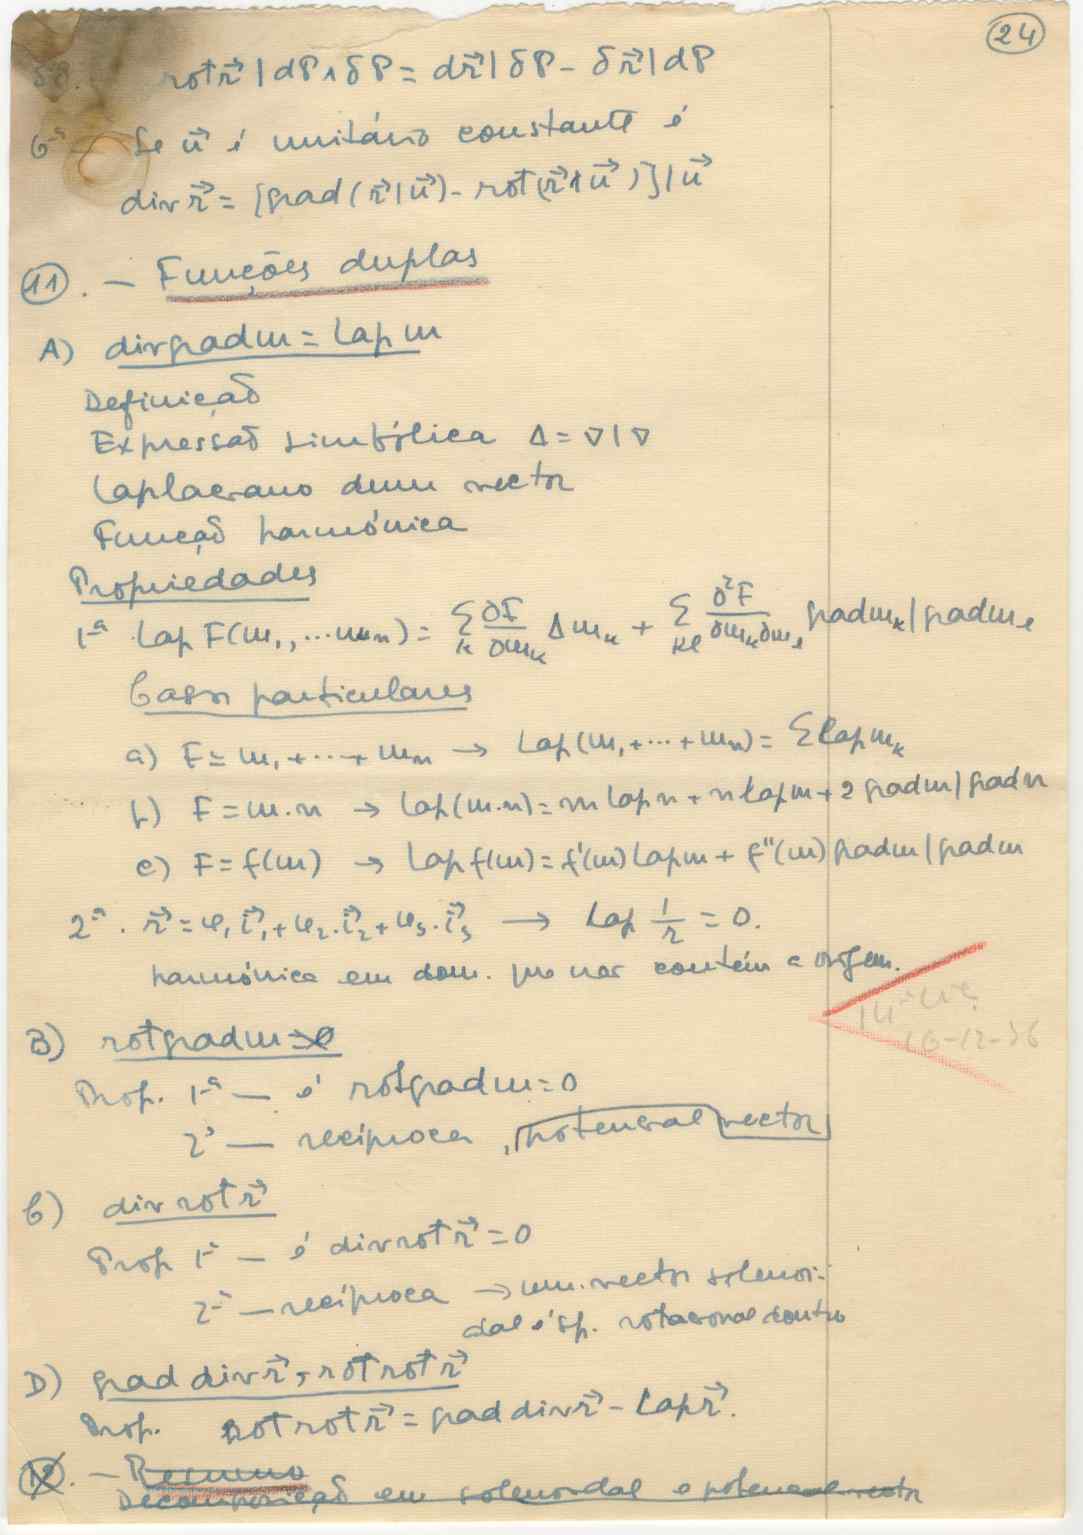 24
5ª. rot r⃗ | dP ∧ δP = dr⃗ | δP - δr⃗ | dP
6ª - Se u⃗ é unitário constante é
div r⃗ = [grad (r⃗ | u⃗) - rot (r⃗ ∧ u⃗)] | u⃗
11. - Funções duplas
A) div grad m = Lap m
Definição
Expressão simbólica Δ = ∇ | ∇
Laplaceano dum vector
Função harmónica
Propriedades
1ª Lap F(m₁, ... mₙ) = Σₖ ∂F/∂mₖ Δmₖ + Σₖₗ ∂²F/∂mₖ∂mₗ grad mₖ | grad mₗ
Casos particulares
a) F = m₁ + ... + mₙ → Lap (m₁ + ... + mₙ) = Σ Lap mₖ
b) F = m.n → Lap (m.n) = m Lap n + n Lap m + 2 grad m | grad n
c) F = f(m) → Lap f(m) = f'(m) Lap m + f''(m) grad m | grad m
2ª. r⃗ = φ₁ i⃗₁ + φ₂.i⃗₂ + φ₃.i⃗₃ → Lap 1/r = 0.
harmónica em dom. que não contém a origem.
14ª
10-12-56
B) rot grad m = 0
Prop. 1ª - é rot grad m = 0
2ª - recíproca, potencial vector
C) div rot r⃗
Prop 1ª - é div rot r⃗ = 0
2ª - recíproca → um vector solenoi-
dal é sp. rotacional doutro
D) grad div r⃗, rot rot r⃗
Prop. rot rot r⃗ = grad div r⃗ - Lap r⃗.
12. - Resumo
Decomposição em solenoidal e potencial vector